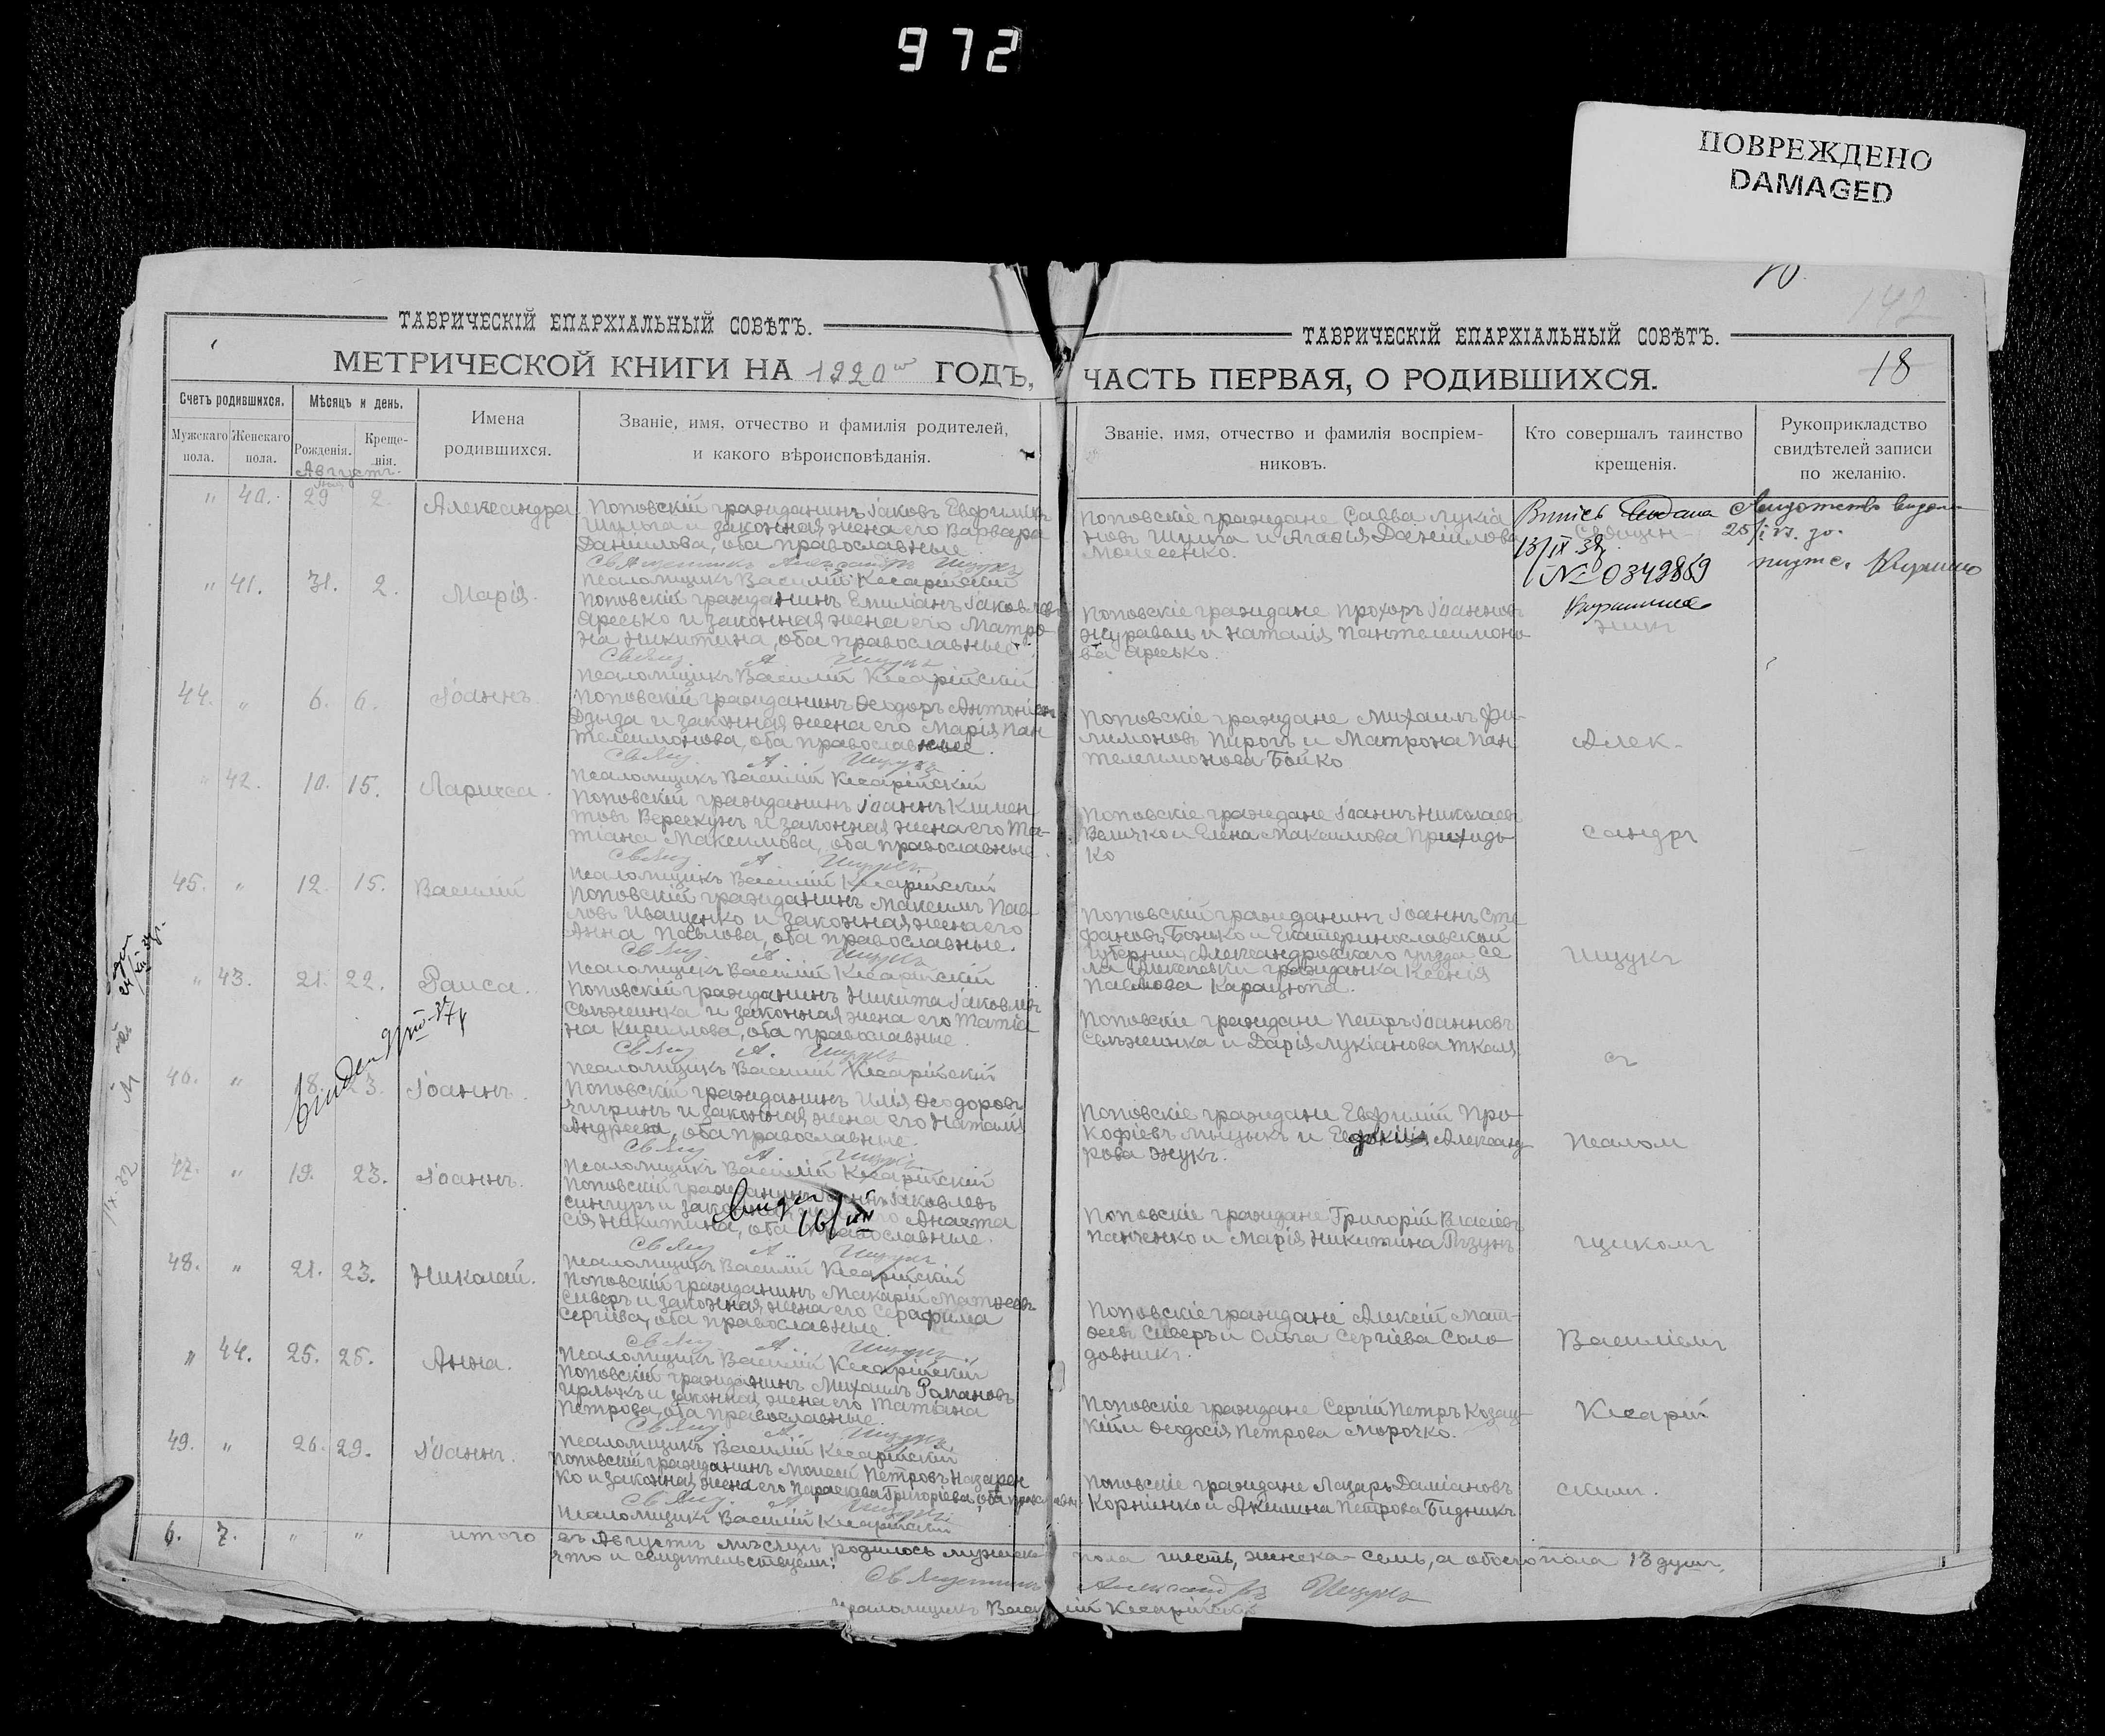 972
ПОВРЕЖДЕНО
DAMAGED
142
18
ТАВРИЧЕСКІЙ ЕПАРХІАЛЬНЫЙ СОВѢТЪ.
МЕТРИЧЕСКОЙ КНИГИ НА 1920 ГОДЪ,
Счетъ родившихся.
Мѣсяцъ и день.
Мужскаго пола.
Женскаго пола.
Рожденія.
Креще-
нія.
Имена
родившихся.
Званіе, имя, отчество и фамилія родителей,
и какого вѣроисповѣданія.
Августъ.
" 40. 29 2. Александра
Поповскій гражданинъ Іаковъ Евфиміевъ
Шульга и законная жена его Варвара
Даніилова, оба православные.
Священникъ Александръ Щукъ
Псаломщикъ Василій Кесарійскій
" 41. 31. 2. Марія.
Поповскій гражданинъ Емиліанъ Іаковлевъ
Яресько и законная жена его Матро-
на Никитина, оба православные.
Свящ. А. Щукъ
Псаломщикъ Василій Кесарійскій
44. " 6. 6. Іоаннъ.
Поповскій гражданинъ Ѳеодоръ Антоніевъ
Дзыза и законная жена его Марія Пан
телеимонова, оба православные.
Свящ. А. Щукъ
Псаломщикъ Василій Кесарійскій
" 42. 10. 15. Лариса.
Поповскій гражданинъ Іоаннъ Климен-
товъ Верескунъ и законная жена его Та-
тіана Максимова, оба православные.
Свящ. А. Щукъ
Псаломщикъ Василій Кесарійскій
45. " 12. 15. Василій
Поповскій гражданинъ Максимъ Пав-
ловъ Иващенко и законная жена его
Анна Павлова, оба православные.
Свящ. А. Щукъ
Псаломщикъ Василій Кесарійскій
" 43. 21. 22. Раиса.
Поповскій гражданинъ Никита Іаковлевъ
Свѣженка и законная жена его Татіа
на Кирилова, оба православные.
Свящ. А. Щукъ
Псаломщикъ Василій Кесарійскій
46. " 18. 23. Іоаннъ.
Поповскій гражданинъ Илія Ѳеодоровъ
Чигринъ и законная жена его Наталія
Андреева, оба православные.
Свящ. А. Щукъ
Псаломщикъ Василій Кесарійскій
47. " 19. 23. Іоаннъ.
Поповскій гражданинъ Іоаннъ Іаковлевъ
Сингуръ и законная жена его Анаста
сія Никитина, оба православные.
Свящ. А. Щукъ
Псаломщикъ Василій Кесарійскій
48. " 21. 23. Николай.
Поповскій гражданинъ Макарій Матѳеевъ
Сиверъ и законная жена его Серафима
Сергіева, оба православные.
Свящ. А. Щукъ
Псаломщикъ Василій Кесарійскій
" 44. 25. 25. Анна.
Поповскій гражданинъ Михаилъ Романовъ
и законная жена его Татіана
Петрова, оба православные.
Свящ. А. Щукъ
Псаломщикъ Василій Кесарійскій
49. " 26. 29. Іоаннъ.
Поповскій гражданинъ Моисей Петровъ Назарен
ко и законная жена его Параскева Григоріева, оба православн.
Свящ. А. Щукъ
Псаломщикъ Василій Кесарійскій
6. 7. " " итого въ Августѣ мѣсяцѣ родилось мужеска пола шесть, женска-семь, а обоего пола 13 душъ,
что и свидѣтельствуемъ:
Священникъ Александръ Щукъ
Псаломщикъ Василій Кесарійскій
ТАВРИЧЕСКІЙ ЕПАРХІАЛЬНЫЙ СОВѢТЪ.
ЧАСТЬ ПЕРВАЯ, О РОДИВШИХСЯ.
Званіе, имя, отчество и фамилія воспріем-
никовъ.
Кто совершалъ таинство
крещенія.
Рукоприкладство
свидѣтелей записи
по желанію.
Поповскіе граждане Савва Лукіа
новъ Шульга и Агаѳія Даніилова
Моисеенко.
Священ-
13/IX 38
№ 0342869
Поповскіе граждане Прохоръ Іоанновъ
Журавель и Наталія Пантелеимоно
ва Яресько.
никъ
Поповскіе граждане Михаилъ Фи-
лимоновъ Пирогъ и Матрона Пан
телеимонова Бойко
Алек-
Поповскіе граждане Іоаннъ Николаевъ
Величко и Елена Максимова Приходь
ко
сандръ
Поповскій гражданинъ Іоаннъ Сте
фановъ Божко и Екатеринославской
губерніи, Александровскаго уѣзда се
ла гражданка Ксенія
Павлова Карацюпа.
Щукъ
Поповскіе граждане Петръ Іоанновъ
Свѣженка и Дарія Лукіанова Ткаля
съ
Поповскіе граждане Евфимій Про-
кофіевъ Мыцыкъ и Евдокія Александ
рова Жукъ.
псалом
Поповскіе граждане Григорій Власіевъ
Панченко и Марія Никитина Рѣзунъ
щикомъ
Поповскіе граждане Алексій Мат-
ѳеевъ Сиверъ и Ольга Сергіева Соло
довникъ.
Василіемъ
Поповскіе граждане Сергій Петръ Козац-
кій и Ѳеодосія Петрова Морочко.
Кесарій
Поповскіе граждане Лазарь Даміановъ
Корніенко и Акилина Петрова Бидникъ
скимъ.